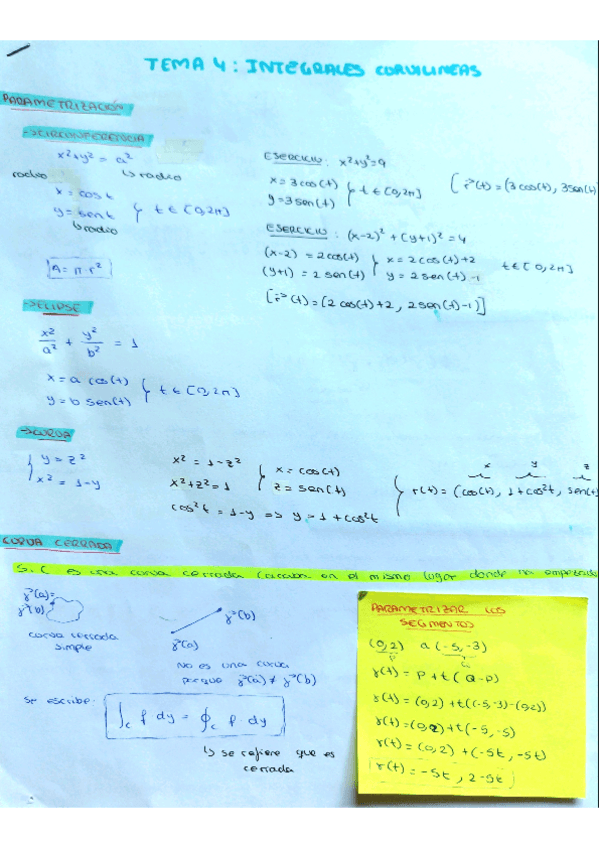 TEMA 4: INTEGRALES CURVILINEAS
PARAMETRIZACIÓN
→CIRCUNFERENCIA
x²+y² = a²
↳ radio
radio
x = cos t
y = sen t } t ∈ [0,2π]
↳ radio
A = π·r²
EJERCICIO: x²+y²=9
x = 3cos(t)
y = 3sen(t) } t ∈ [0,2π]
[r⃗(t) = (3cos(t), 3sen(t)
EJERCICIO: (x-2)² + (y+1)² = 4
(x-2) = 2cos(t) } x = 2cos(t)+2
(y+1) = 2sen(t) } y = 2sen(t)-1
t ∈ [0,2π]
[r⃗(t) = [2cos(t)+2, 2sen(t)-1)]
→ELIPSE
x²/a² + y²/b² = 1
x = a cos(t)
y = b sen(t) } t ∈ [0,2π]
→CURVA
{ y = z²
x² = 1-y
x² = 1-z²
x²+z² = 1
{ x = cos(t)
z = sen(t)
cos²t = 1-y => y = 1+cos²t
x y z
{ r(t) = (cos(t), 1+cos²t, sen(t)
CURVA CERRADA
Si C es una curva cerrada en el mismo lugar donde ha empezado
γ⃗(a)=
γ⃗(b)
curva cerrada
simple
γ⃗(b)
γ⃗(a)
No es una curva
porque γ⃗(a) ≠ γ⃗(b)
Se escribe:
∫c f dγ = ∮c f·dγ
↳ se refiere que es
cerrada
PARAMETRIZAR LOS
SEGMENTOS
(0,2) a (-5,-3)
P Q
γ(t) = P+t(Q-P)
γ(t) = (0,2)+t((-5,-3)-(0,2))
γ(t) = (0,2)+t(-5,-5)
γ(t) = (0,2)+(-5t,-5t)
γ(t) = -5t, 2-5t